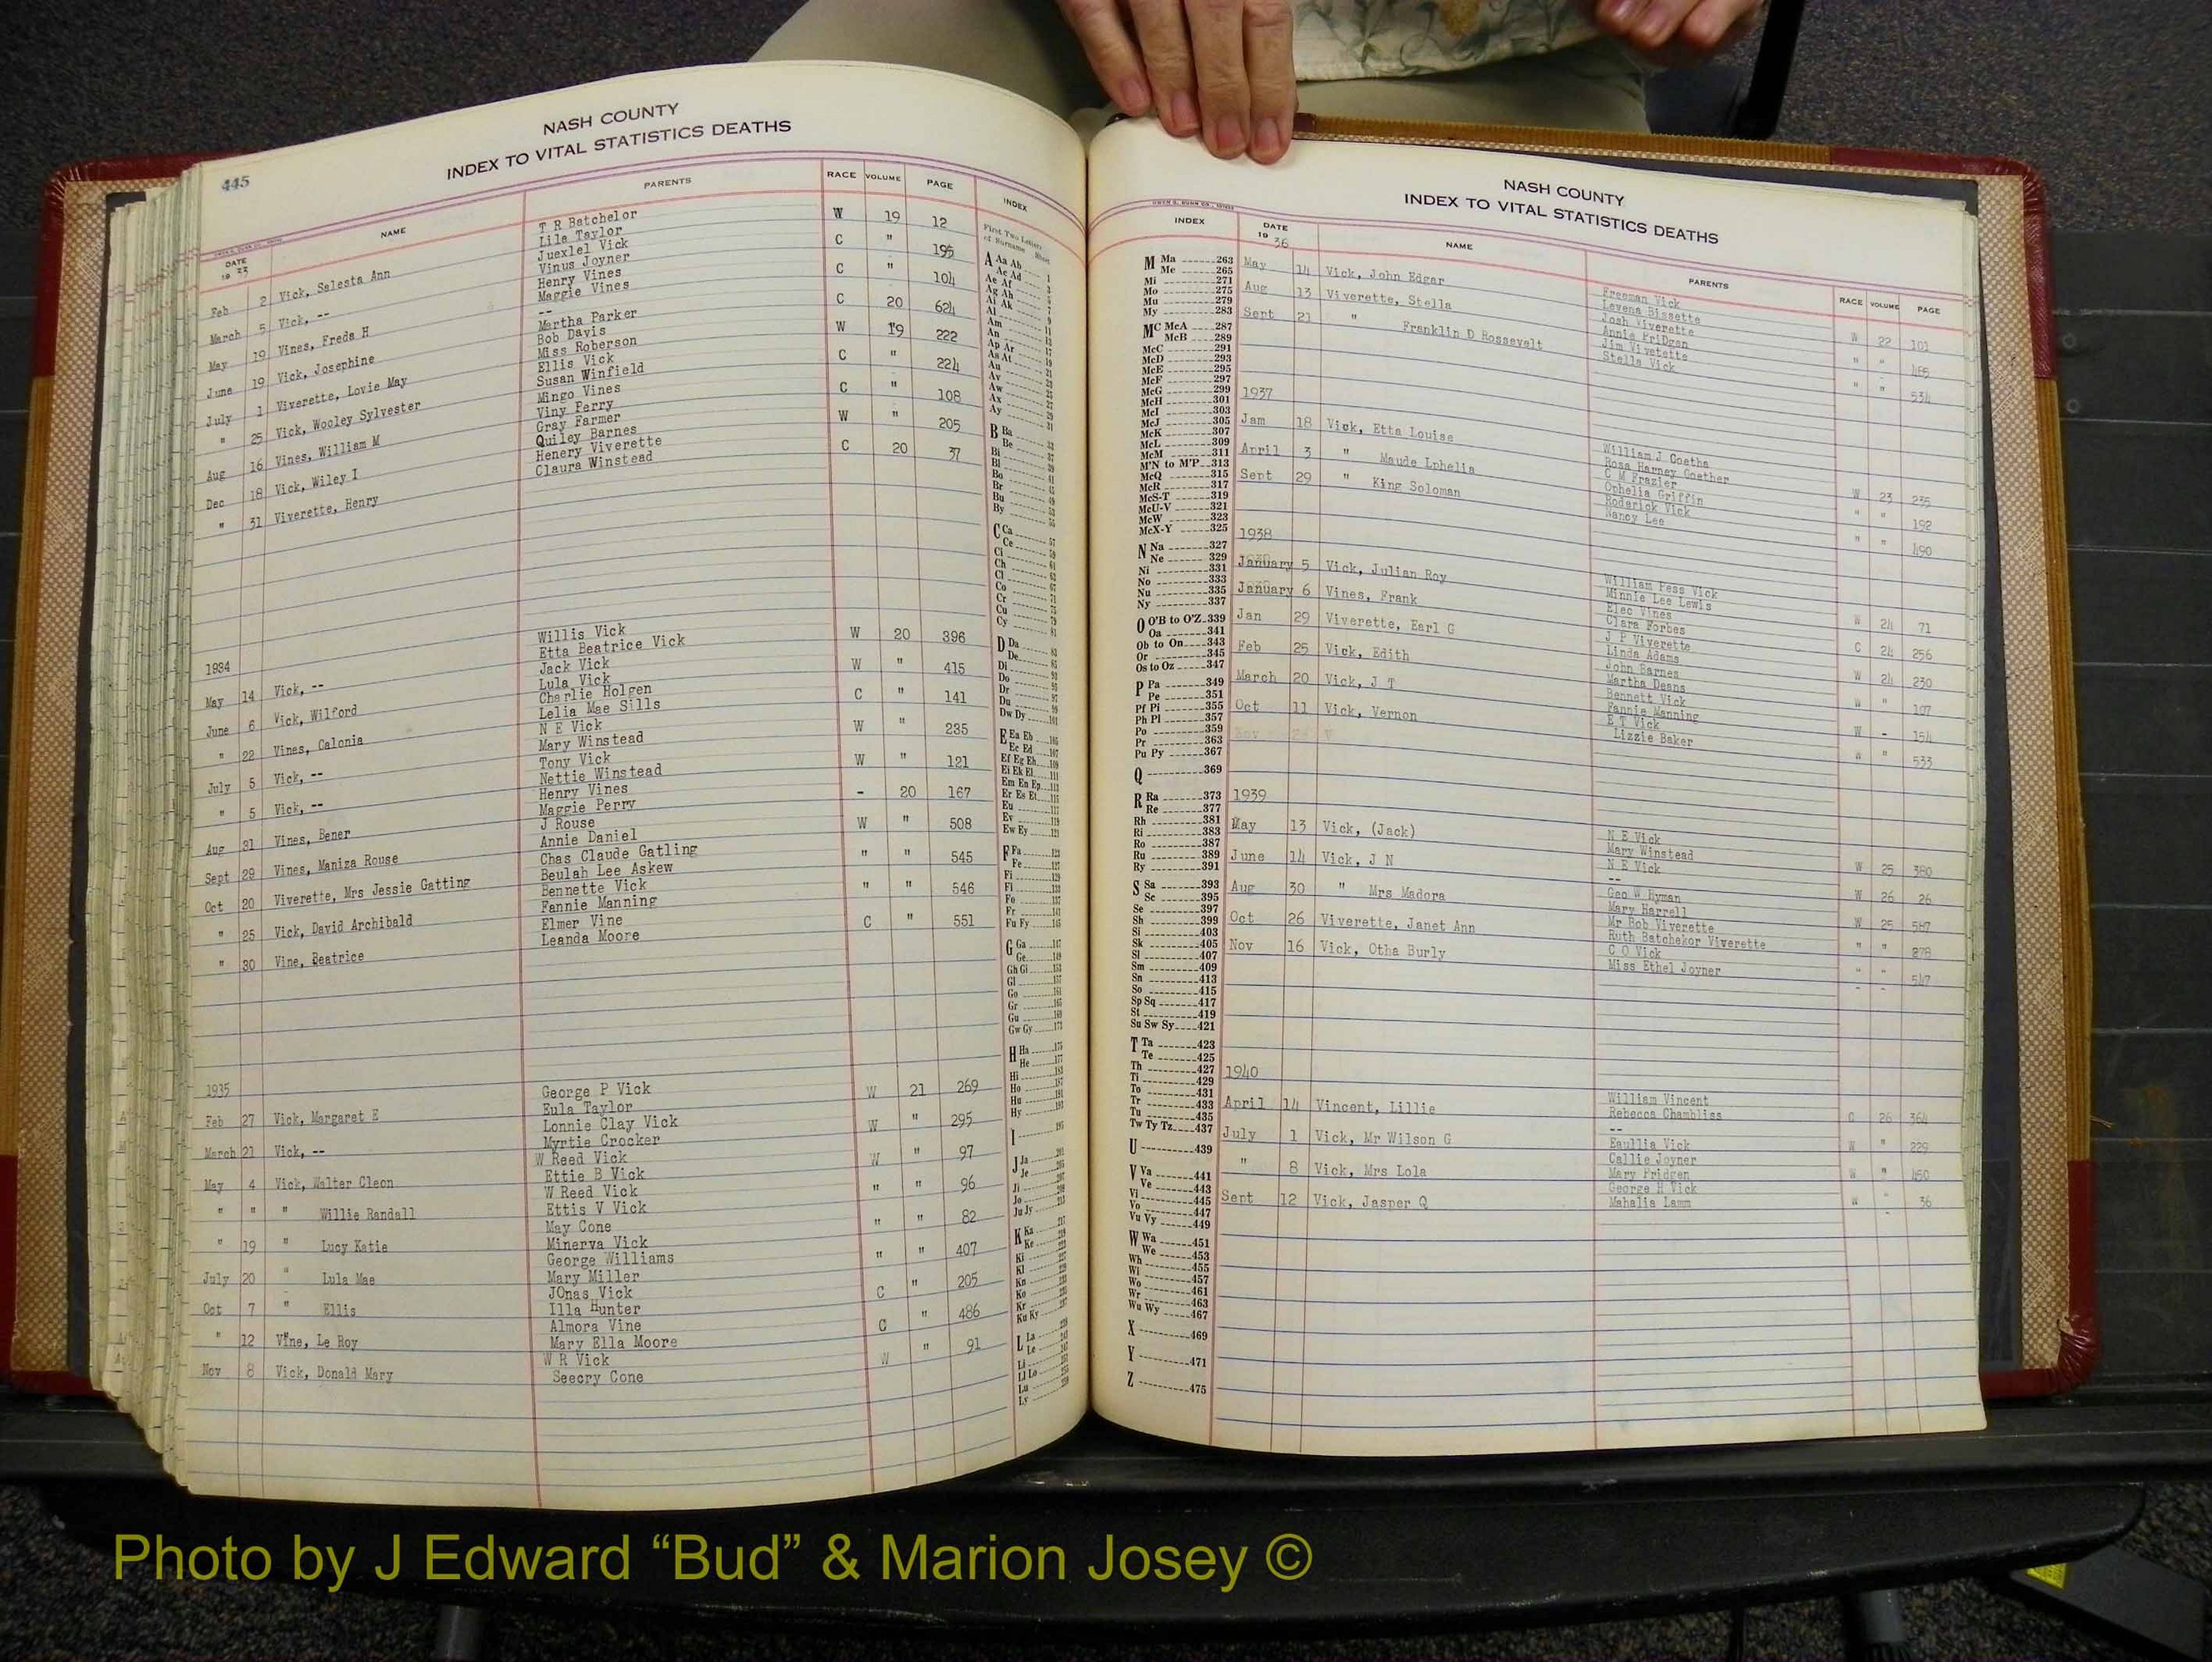 445
NASH COUNTY
INDEX TO VITAL STATISTICS DEATHS
DATE NAME PARENTS RACE VOLUME PAGE INDEX
19 33
Feb 2 Vick, Selesta Ann T R Batchelor W 19 12
Lila Taylor
March 5 Vick, -- Juexlel Vick C " 195
Vinus Joyner
May 19 Vines, Freda H Henry Vines C " 104
Maggie Vines
June 19 Vick, Josephine -- C 20 624
Martha Parker
July 1 Viverette, Lovie May Bob Davis W 19 222
Miss Roberson
" 25 Vick, Wooley Sylvester Ellis Vick C " 224
Susan Winfield
Aug 16 Vines, William M Mingo Vines C " 108
Viny Perry
Dec 18 Vick, Wiley I Gray Farmer W " 205
Quiley Barnes
" 31 Viverette, Henry Henery Viverette C 20 37
Claura Winstead
1934
May 14 Vick, -- Willis Vick W 20 396
Etta Beatrice Vick
June 6 Vick, Wilford Jack Vick W " 415
Lula Vick
" 22 Vines, Calonia Charlie Holgen C " 141
Lelia Mae Sills
July 5 Vick, -- N E Vick W " 235
Mary Winstead
" 5 Vick, -- Tony Vick W " 121
Nettie Winstead
Aug 31 Vines, Bener Henry Vines - 20 167
Maggie Perry
Sept 29 Vines, Maniza Rouse J Rouse W " 508
Annie Daniel
Oct 20 Viverette, Mrs Jessie Gatting Chas Claude Gatling " " 545
Beulah Lee Askew
" 25 Vick, David Archibald Bennette Vick " " 546
Fannie Manning
" 30 Vine, Beatrice Elmer Vine C " 551
Leanda Moore
1935
Feb 27 Vick, Margaret E George P Vick W 21 269
Eula Taylor
March 21 Vick, -- Lonnie Clay Vick W " 295
Myrtie Crocker
May 4 Vick, Walter Cleon W Reed Vick W " 97
Ettie B Vick
" " " Willie Randall W Reed Vick " " 96
Ettis V Vick
" 19 " Lucy Katie May Cone " " 82
Minerva Vick
July 20 " Lula Mae George Williams " " 407
Mary Miller
Oct 7 " Ellis JOnas Vick C " 205
Illa Hunter
" 12 Vine, Le Roy Almora Vine C " 486
Mary Ella Moore
Nov 8 Vick, Donald Mary W R Vick W " 91
Seecry Cone
First Two Letters
of Surname Sheet
A Aa Ab 1
Ac Ad 3
Ae Af 5
Ag Ah 7
Ai Ak 9
Al 11
Am
An
Ap Ar
As At
Au
Av
Aw
Ax
Ay 31
B Ba
Be
Bi
Bl
Bo
Br
Bu
By
C Ca 57
Ce
Ci
Ch
Cl
Co
Cr
Cu
Cy 81
D Da
De
Di
Do
Dr
Du
Dw Dy
E Ea Eb
Ec Ed
Ef Eg Eh
Ei Ek El
Em En Ep
Er Es Et
Eu
Ev
Ew Ey
F Fa
Fe
Fi
Fl
Fo
Fr
Fu Fy
G Ga
Ge
Gh Gi
Gl
Go
Gr
Gu
Gw Gy
H Ha
He
Hi
Ho
Hu
Hy
I
J Ja
Je
Ji
Jo
Ju Jy
K Ka
Ke
Ki
Kl
Kn
Ko
Kr
Ku Ky
L La
Le
Li
Ll Lo
Lu
Ly
NASH COUNTY
INDEX TO VITAL STATISTICS DEATHS
INDEX DATE NAME PARENTS RACE VOLUME PAGE
19 36
M Ma 263
Me 265
Mi 271
Mo 275
Mu 279
My 283
MC McA 287
McB 289
McC 291
McD 293
McE 295
McF 297
McG 299
McH 301
McI 303
McJ 305
McK 307
McL 309
McM 311
M'N to M'P 313
McQ 315
McR 317
McS-T 319
McU-V 321
McW 323
McX-Y 325
N Na 327
Ne 329
Ni 331
No 333
Nu 335
Ny 337
O O'B to O'Z 339
Oa 341
Ob to On 343
Or 345
Os to Oz 347
P Pa 349
Pe 351
Pf Pi 355
Ph Pl 357
Po 359
Pr 363
Pu Py 367
Q 369
R Ra 373
Re 377
Rh 381
Ri 383
Ro 387
Ru 389
Ry 391
S Sa 393
Sc 395
Se 397
Sh 399
Si 403
Sk 405
Sl 407
Sm 409
Sn 413
So 415
Sp Sq 417
St 419
Su Sw Sy 421
T Ta 423
Te 425
Th 427
Ti 429
To 431
Tr 433
Tu 435
Tw Ty Tz 437
U 439
V Va 441
Ve 443
Vi 445
Vo 447
Vu Vy 449
W Wa 451
We 453
Wh 455
Wi 457
Wo 461
Wr 463
Wu Wy 467
X 469
Y 471
Z 475
May 14 Vick, John Edgar Freeman Vick W 22 101
Lavena Bissette
Aug 13 Viverette, Stella Josh Viverette " " 465
Annie PriDgen
Sept 21 " Franklin D Rossevelt Jim Vivetette " " 534
Stella Vick
1937
Jam 18 Vick, Etta Louise William J Goetha W 23 235
Rosa Harney Goether
April 3 " Maude Lphelia C M Frazier " " 192
Ophelia Griffin
Sept 29 " King Soloman Roderick Vick " " 490
Nancy Lee
1938
January 5 Vick, Julian Roy William Pess Vick W 24 71
Minnie Lee Lewis
January 6 Vines, Frank Elec Vines C 24 256
Clara Forbes
Jan 29 Viverette, Earl G J P Viverette W 24 230
Linda Adams
Feb 25 Vick, Edith John Barnes W " 107
Martha Deans
March 20 Vick, J T Bennett Vick W - 154
Fannie Manning
Oct 11 Vick, Vernon E T Vick W " 533
Lizzie Baker
1939
May 13 Vick, (Jack) N E Vick W 25 380
Mary Winstead
June 14 Vick, J N N E Vick W 26 26
--
Aug 30 " Mrs Madora Geo W Hyman W 25 587
Mary Harrell
Oct 26 Viverette, Janet Ann Mr Bob Viverette " " 278
Ruth Batchekor Viverette
Nov 16 Vick, Otha Burly C O Vick " " 547
Miss Ethel Joyner
1940
April 14 Vincent, Lillie William Vincent C 26 364
Rebecca Chambliss
July 1 Vick, Mr Wilson G -- W " 229
Eaullia Vick
" 8 Vick, Mrs Lola Callie Joyner W " 460
Mary Pridgen
Sept 12 Vick, Jasper Q George H Vick W " 36
Mahalia Lamm
Photo by J Edward “Bud” & Marion Josey ©